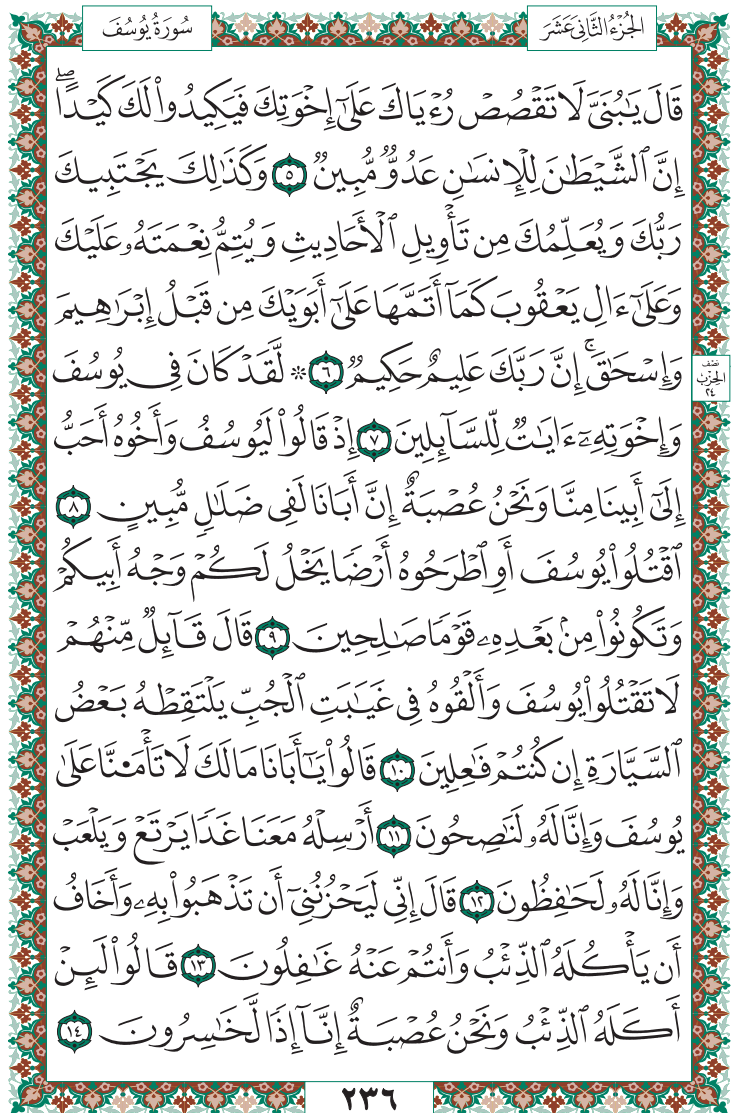 الجُزْءُ الثَّانِي عَشَرَ
سُورَةُ يُوسُفَ
قَالَ يَٰبُنَيَّ لَا تَقْصُصْ رُءْيَاكَ عَلَىٰٓ إِخْوَتِكَ فَيَكِيدُوا۟ لَكَ كَيْدًاۖ
إِنَّ ٱلشَّيْطَٰنَ لِلْإِنسَٰنِ عَدُوٌّ مُّبِينٌ ٥ وَكَذَٰلِكَ يَجْتَبِيكَ
رَبُّكَ وَيُعَلِّمُكَ مِن تَأْوِيلِ ٱلْأَحَادِيثِ وَيُتِمُّ نِعْمَتَهُۥ عَلَيْكَ
وَعَلَىٰٓ ءَالِ يَعْقُوبَ كَمَآ أَتَمَّهَا عَلَىٰٓ أَبَوَيْكَ مِن قَبْلُ إِبْرَٰهِيمَ
وَإِسْحَٰقَۚ إِنَّ رَبَّكَ عَلِيمٌ حَكِيمٌ ٦ ۞ لَّقَدْ كَانَ فِى يُوسُفَ
نصف
الحزب
٢٤
وَإِخْوَتِهِۦٓ ءَايَٰتٌ لِّلسَّآئِلِينَ ٧ إِذْ قَالُوا۟ لَيُوسُفُ وَأَخُوهُ أَحَبُّ
إِلَىٰٓ أَبِينَا مِنَّا وَنَحْنُ عُصْبَةٌ إِنَّ أَبَانَا لَفِى ضَلَٰلٍ مُّبِينٍ ٨
ٱقْتُلُوا۟ يُوسُفَ أَوِ ٱطْرَحُوهُ أَرْضًا يَخْلُ لَكُمْ وَجْهُ أَبِيكُمْ
وَتَكُونُوا۟ مِنۢ بَعْدِهِۦ قَوْمًا صَٰلِحِينَ ٩ قَالَ قَآئِلٌ مِّنْهُمْ
لَا تَقْتُلُوا۟ يُوسُفَ وَأَلْقُوهُ فِى غَيَٰبَتِ ٱلْجُبِّ يَلْتَقِطْهُ بَعْضُ
ٱلسَّيَّارَةِ إِن كُنتُمْ فَٰعِلِينَ ١٠ قَالُوا۟ يَٰٓأَبَانَا مَا لَكَ لَا تَأْمَ۫نَّا عَلَىٰ
يُوسُفَ وَإِنَّا لَهُۥ لَنَٰصِحُونَ ١١ أَرْسِلْهُ مَعَنَا غَدًا يَرْتَعْ وَيَلْعَبْ
وَإِنَّا لَهُۥ لَحَٰفِظُونَ ١٢ قَالَ إِنِّى لَيَحْزُنُنِىٓ أَن تَذْهَبُوا۟ بِهِۦ وَأَخَافُ
أَن يَأْكُلَهُ ٱلذِّئْبُ وَأَنتُمْ عَنْهُ غَٰفِلُونَ ١٣ قَالُوا۟ لَئِنْ
أَكَلَهُ ٱلذِّئْبُ وَنَحْنُ عُصْبَةٌ إِنَّآ إِذًا لَّخَٰسِرُونَ ١٤
٢٣٦